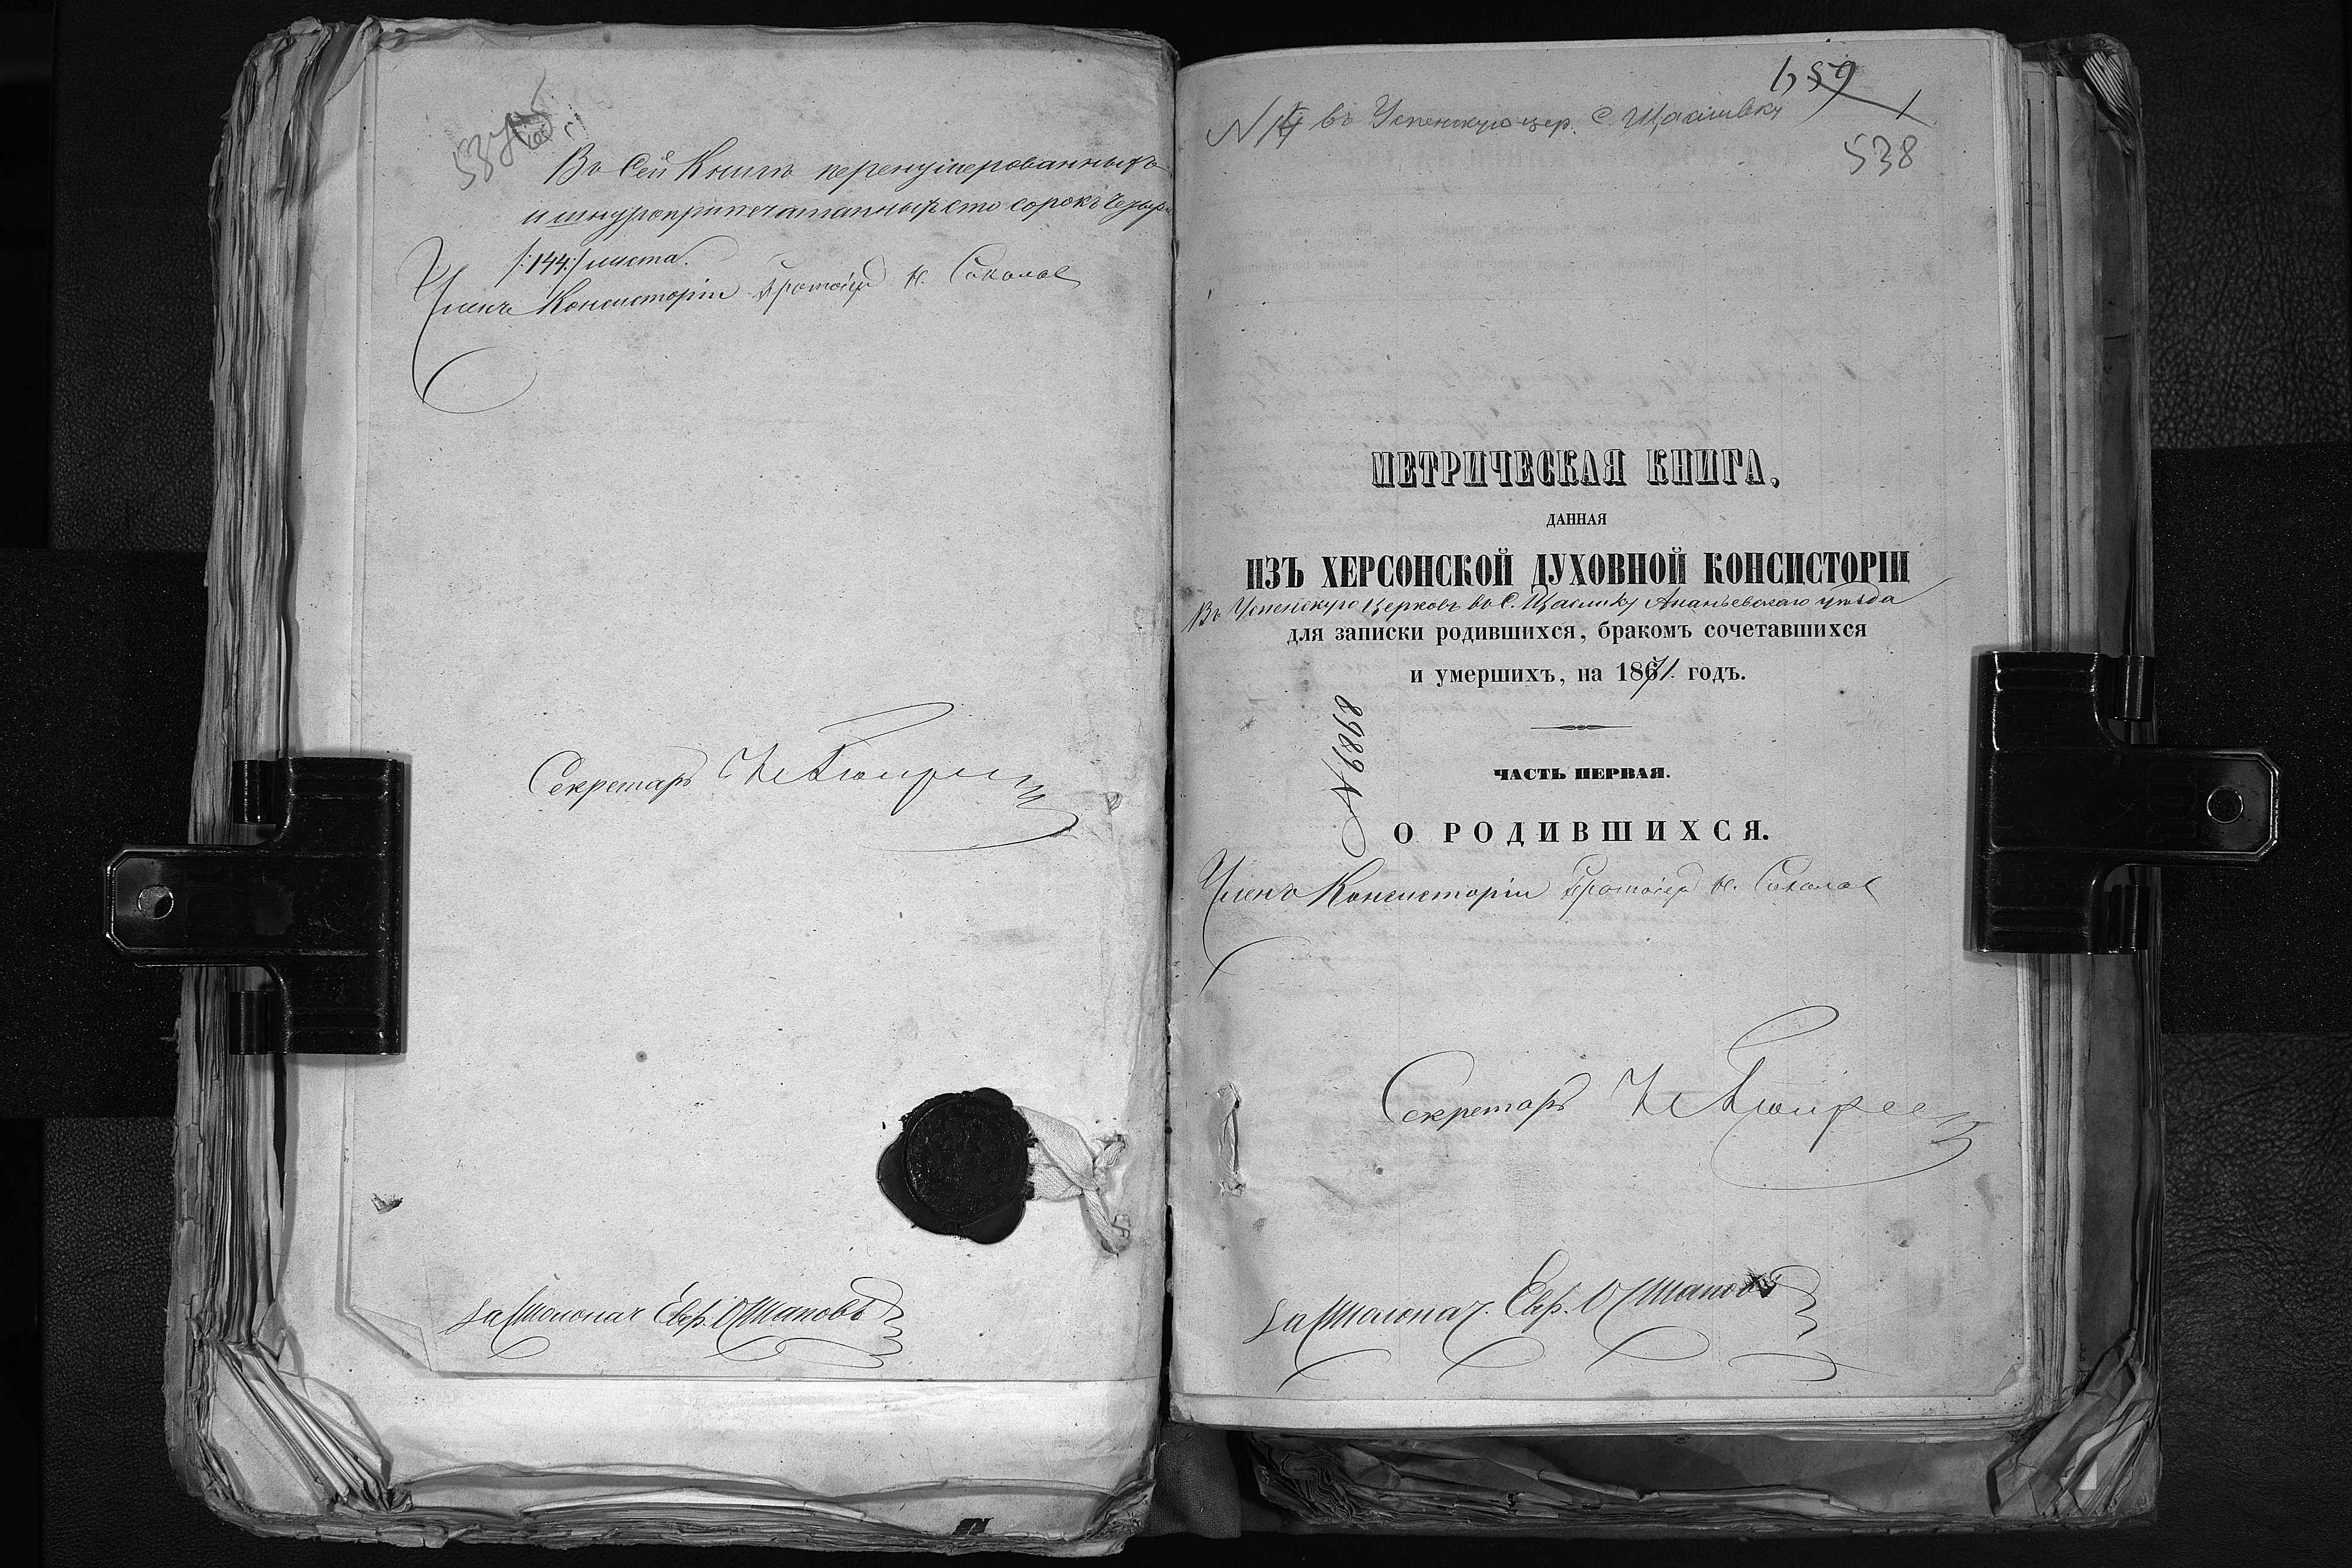 Въ сей Книгѣ перенумерованныхъ
и шнуроприпечатанныхъ сто сорокъ четыре
/:144:/ листа.
Членъ Консисторіи Протоіер Н. Соколов
Секретарь
За Столонач Евф. Остаповъ
659
1
№ 14 въ Успенскую цер. с.
538
МЕТРИЧЕСКАЯ КНИГА,
ДАННАЯ
ИЗЪ ХЕРСОНСКОЙ ДУХОВНОЙ КОНСИСТОРІИ
Въ Успенскую Церковь въ С. Ананьевскаго уѣзда
для записки родившихся, бракомъ сочетавшихся
и умершихъ, на 1871 годъ.
№ 8989
ЧАСТЬ ПЕРВАЯ.
О РОДИВШИХСЯ.
Членъ Консисторіи Протоіер Н. Соколов
Секретарь
За Столонач. Евф. Остаповъ